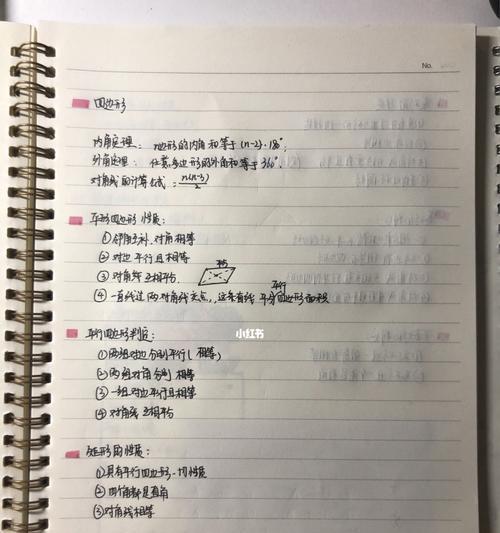 No.
四边形
内角定理：n边形的内角和等于(n-2)·180°.
外角定理：任意多边形的外角和等于360°.
对角线的计算公式：=n(n-3)/2
平行四边形性质：
①邻角互补.对角相等
②对边平行且相等
③对角线互相平分.
平行
④一直线过两对角线交点,,这条直线平分四边形面积
小红书
平行四边形判定：
①两组对边分别平行(相等)
②两组对角分别相等
③一组对边平行且相等
④对角线互相平分
矩形的性质：
①具有平行四边形一切性质
②四个角都是直角
③对角线相等